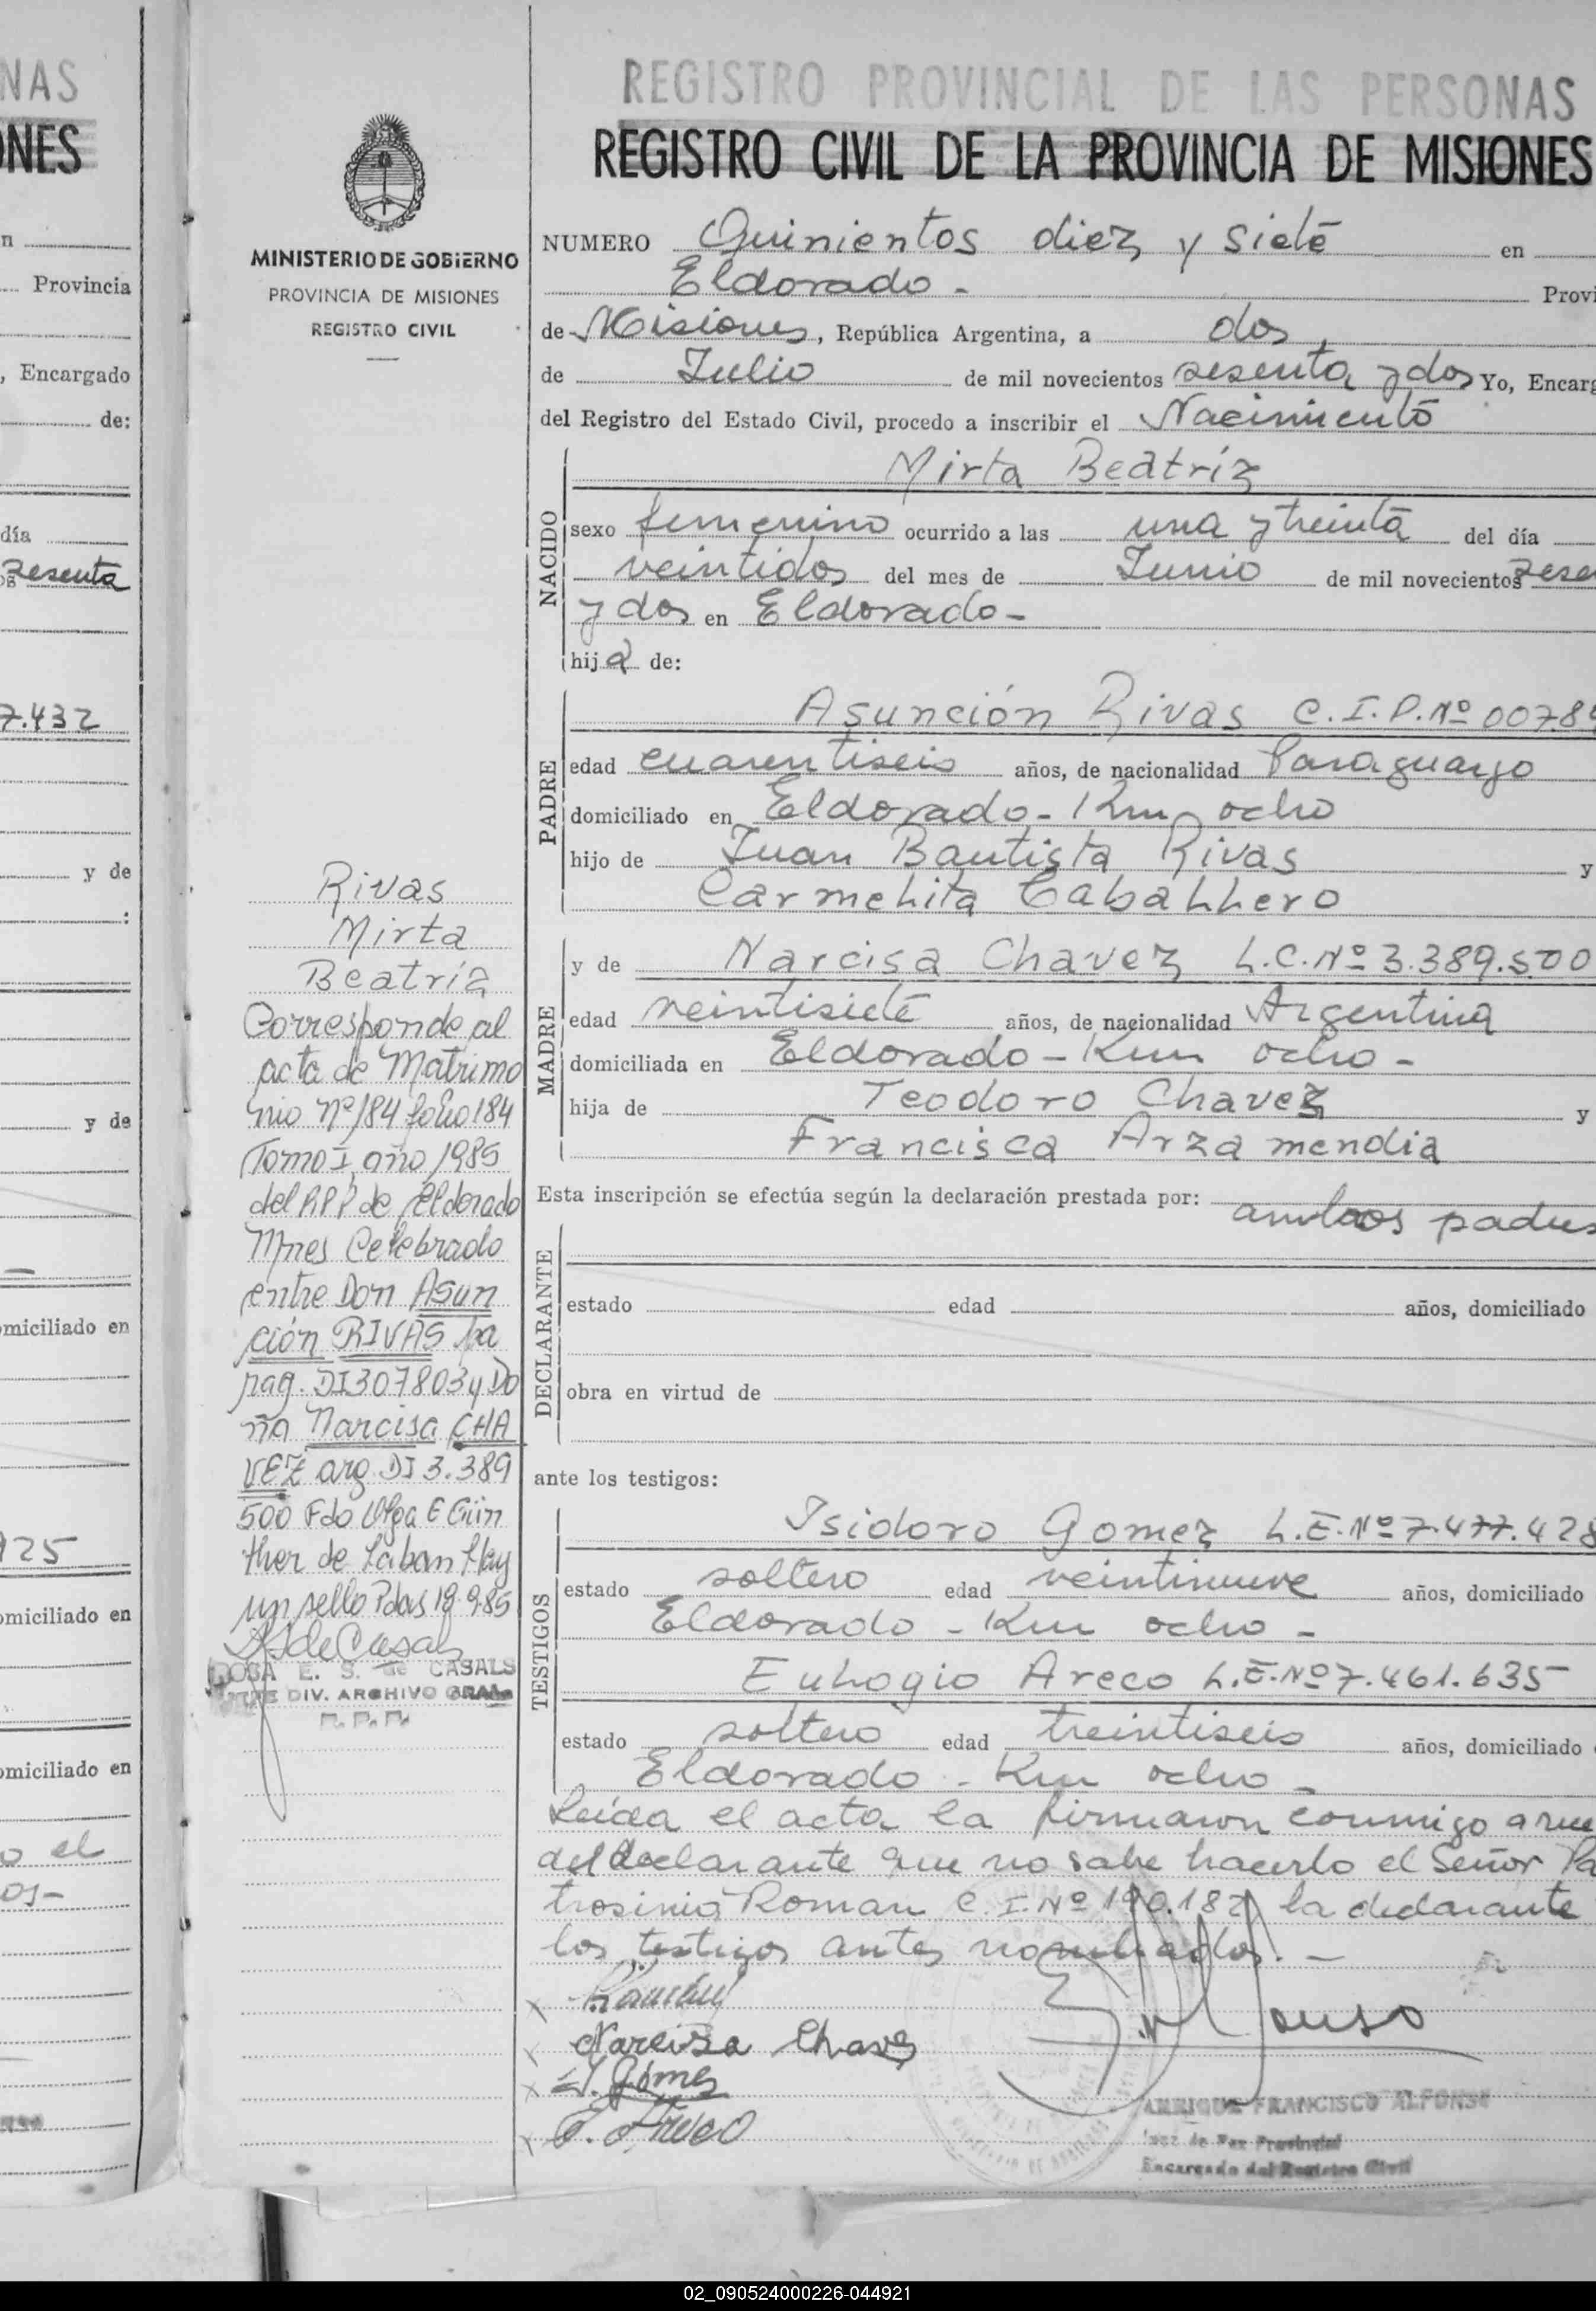 NAS
ONES
n
Provincia
, Encargado
de:
día
sesenta
7.432
y de
:
y de
omiciliado en
925
omiciliado en
omiciliado en
o el
os-
MINISTERIO DE GOBIERNO
PROVINCIA DE MISIONES
REGISTRO CIVIL
Rivas
Mirta
Beatríz
Corresponde al
acta de Matrimo
nio Nº 184 folio 184
Tomo I año 1985
del RPP de Eldorado
Mnes Celebrado
entre Don Asun
ción RIVAS pa
rag. DI 307803 y Do
ña Narcisa CHA
VEZ arg DI 3.389
500 Fdo Olga E Gün
ther de Laban Hay
un sello Pdas 19.9.85
ROSA E. S. de CASALS
JEFE DIV. ARCHIVO GRAL.
R. P. P.
REGISTRO PROVINCIAL DE LAS PERSONAS
REGISTRO CIVIL DE LA PROVINCIA DE MISIONES
NUMERO Quinientos diez y siete en
Eldorado - Provi
de Misiones, República Argentina, a dos,
de Julio de mil novecientos sesenta y dos Yo, Encarg
del Registro del Estado Civil, procedo a inscribir el Nacimiento
NACIDO
Mirta Beatríz
sexo femenino ocurrido a las una y treinta del día
veintidos del mes de Junio de mil novecientos sesen
y dos en Eldorado -
hija de:
PADRE
Asunción Rivas C.I.P. Nº 00789
edad cuarentiseis años, de nacionalidad Paraguayo
domiciliado en Eldorado - Km ocho
hijo de Juan Bautista Rivas y
Carmelita Caballero
MADRE
y de Narcisa Chavez L.C. Nº 3.389.500
edad veintisiete años, de nacionalidad Argentina
domiciliada en Eldorado - Km ocho -
hija de Teodoro Chavez y
Francisca Arzamendia
Esta inscripción se efectúa según la declaración prestada por: ambos padres
DECLARANTE
estado edad años, domiciliado
obra en virtud de
ante los testigos:
TESTIGOS
Isidoro Gomez L.E. Nº 7.477.428
estado soltero edad veintinueve años, domiciliado
Eldorado - Km ocho -
Eulogio Areco L.E. Nº 7.461.635
estado soltero edad treintiseis años, domiciliado
Eldorado - Km ocho -
Leída el acta la firmaron conmigo a rue
del declarante que no sabe hacerlo el Señor Pa
trosinio Roman C.I. Nº 190.182, la declarante
los testigos antes nombrados. -
Narcisa Chavez
I. Gómez
E. Areco
ENRIQUE FRANCISCO ALFONSO
Juez de Paz Provincial
Encargado del Registro Civil
02_090524000226-044921